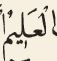 الْعَلِيْمُ